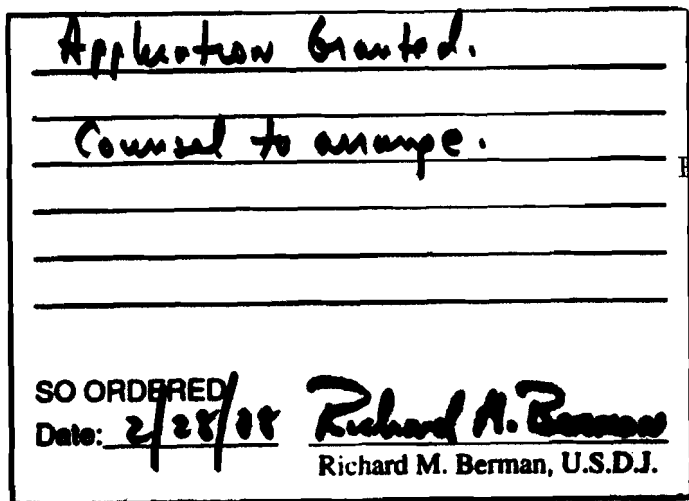 Application Granted.
Counsel to arrange.
SO ORDERED
Date: 2/28/08 Richard M. Berman
Richard M. Berman, U.S.D.J.